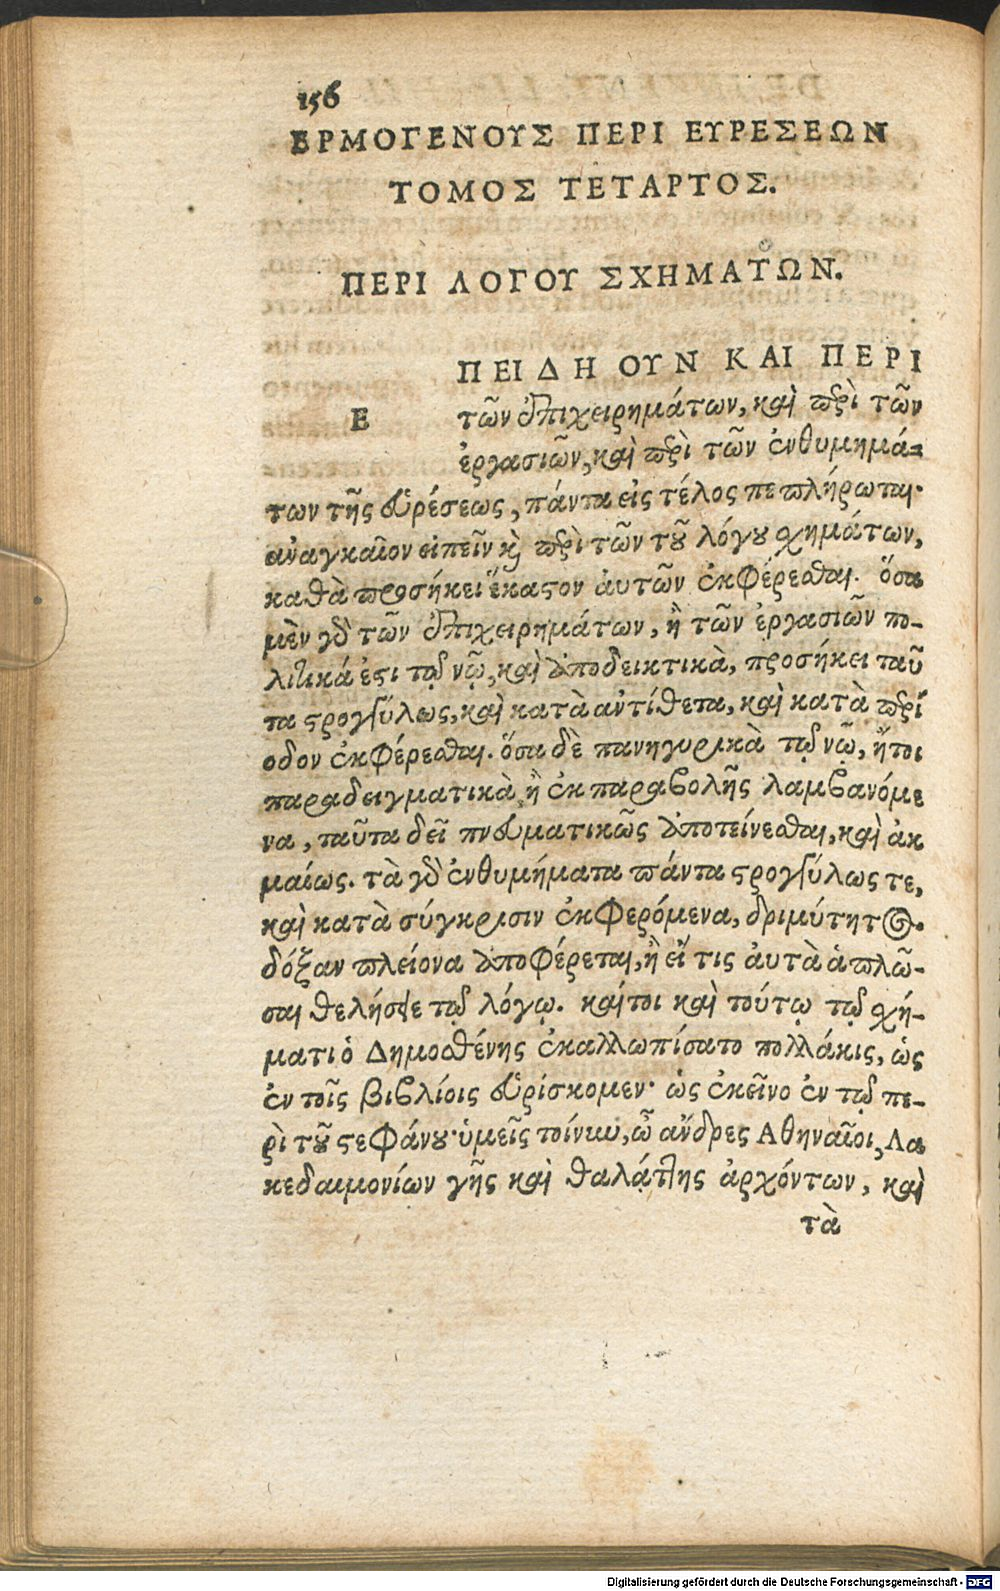 156
ΕΡΜΟΓΕΝΟΥΣ ΠΕΡΙ ΕΥΡΕΣΕΩΝ
ΤΟΜΟΣ ΤΕΤΑΡΤΟΣ.
ΠΕΡΙ ΛΟΓΟΥ ΣΧΗΜΑΤΩΝ.
ΕΠΕΙΔΗ ΟΥΝ ΚΑΙ ΠΕΡΙ
τῶν ἐπιχειρημάτων, καὶ περὶ τῶν
ἐργασιῶν, καὶ περὶ τῶν ἐνθυμημά-
των τῆς εὑρέσεως, πάντα εἰς τέλος πεπλήρωται·
ἀναγκαῖον εἰπεῖν καὶ περὶ τῶν τοῦ λόγου σχημάτων,
καθὰ προσήκει ἕκαστον ἀυτῶν ἐκφέρεσθαι. ὅσα
μὲν γὰρ τῶν ἐπιχειρημάτων, ἢ τῶν ἐργασιῶν πο-
λιτικά ἐστι τῷ νῷ, καὶ ἀποδεικτικὰ, προσήκει ταῦ
τα στρογγύλως, καὶ κατὰ ἀντίθετα, καὶ κατὰ περί
οδον ἐκφέρεσθαι. ὅσα δὲ πανηγυρικὰ τῷ νῷ, ἤτοι
παραδειγματικὰ, ἢ ἐκ παραβολῆς λαμβανόμε
να, ταῦτα δεῖ πνευματικῶς ἀποτείνεσθαι, καὶ ἀκ
μαίως. τὰ γὰρ ἐνθυμήματα πάντα στρογγύλως τε,
καὶ κατὰ σύγκρισιν ἐκφερόμενα, δριμύτητος
δόξαν πλείονα ἀποφέρεται, ἢ εἴ τις ἀυτὰ ἁπλῶ-
σαι θελήσειε τῷ λόγῳ. καίτοι καὶ τούτῳ τῷ σχή-
ματι ὁ Δημοσθένης ἐκαλλωπίσατο πολλάκις, ὡς
ἐν τοῖς βιβλίοις εὑρίσκομεν· ὡς ἐκεῖνο ἐν τῷ πε-
ρὶ τοῦ στεφάνου· ὑμεῖς τοίνυν, ὦ ἄνδρες Αθηναῖοι, Λα
κεδαιμονίων γῆς καὶ θαλάττης ἀρχόντων, καὶ
τὰ
Digitalisierung gefördert durch die Deutsche Forschungsgemeinschaft - DFG